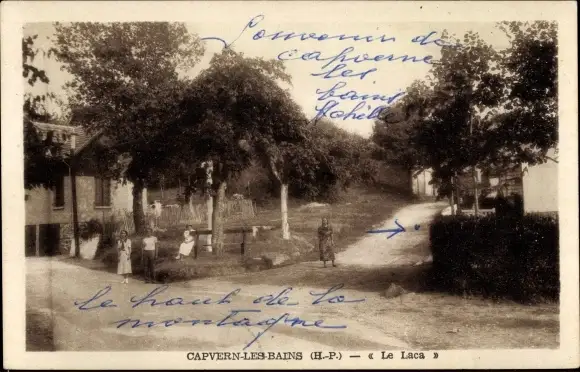 Souvenir de
capverne
les
bains
Achille
le haut de la
montagne
CAPVERN-LES-BAINS (H.-P.) — « Le Laca »